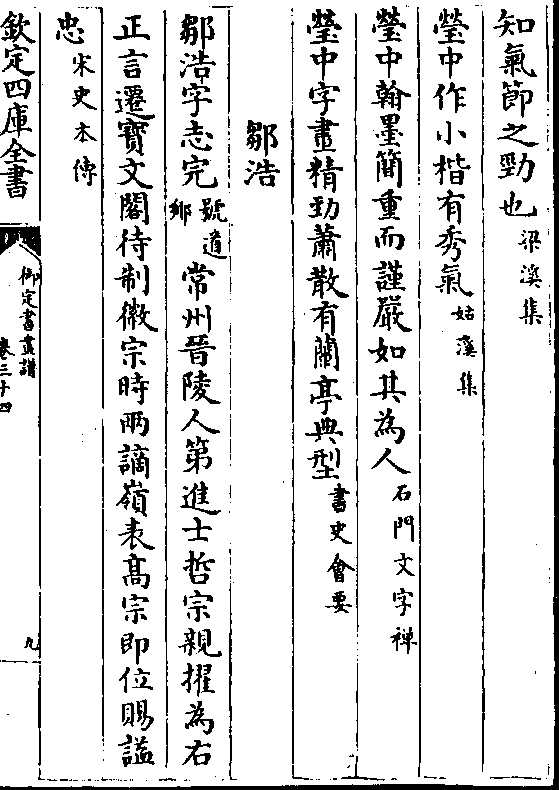 知氣節之勁也梁溪集
瑩中作小楷有秀氣姑溪集
瑩中翰墨簡重而謹嚴如其為人石門文字禪
瑩中字畫精勁蕭散有蘭亭典型書史會要
鄒浩
鄒浩字志完號道鄉常州晉陵人第進士哲宗親擢為右
正言遷寶文閣待制徽宗時兩謫嶺表髙宗即位賜諡
忠宋史本傳
欽定四庫全書
御定書畫譜
卷三十四
九